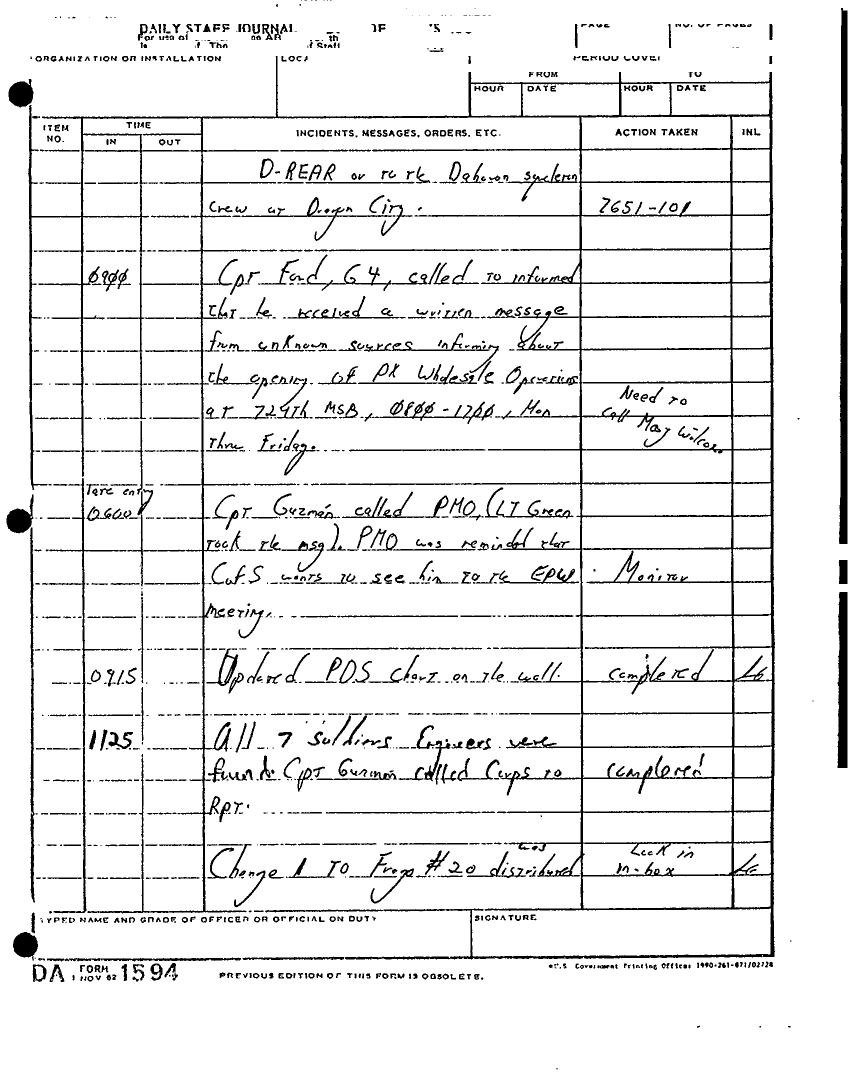 DAILY STAFF JOURNAL
For use of
PAGE
NO. OF PAGES
ORGANIZATION OR INSTALLATION
PERIOD COVER
FROM
TO
HOUR
DATE
HOUR
DATE
ITEM NO.
TIME
IN
OUT
INCIDENTS, MESSAGES, ORDERS, ETC.
ACTION TAKEN
INL
D-REAR or to the Dahavan
crew at Dragon City.
7651-101
0900
Cpt Ford, G4, called to informed
that he received a written message
from unknown sources informing about
the opening of PX Wholesale Operations
at 724th MSB, 0800-1700, Mon
thru Friday.
Need to
call Maj Wilcox
late entry
0600
Cpt Guzmán called PMO, (LT Green
took the msg). PMO was reminded that
CofS wants to see him to the EPW
meeting.
Monitor
0915
Updated PDS chart on the wall.
completed
LG
1125
All 7 soldiers Engineers were
found. Cpt Guzmán called Corps to
Rpt.
completed
Change 1 To Frago #20 was distributed
Look in
n-box
LG
TYPED NAME AND GRADE OF OFFICER OR OFFICIAL ON DUTY
SIGNATURE
DA FORM 1594
1 NOV 62
PREVIOUS EDITION OF THIS FORM IS OBSOLETE.
U.S. Government Printing Office: 1990-261-871/02724